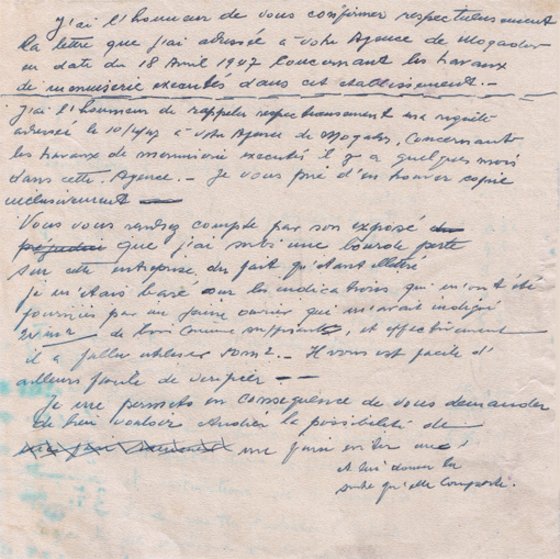 J'ai l'honneur de vous confirmer respectueusement
la lettre que j'ai adressée à votre Agence de Mogador
en date du 18 Avril 1947 concernant les travaux
de menuiserie executés dans cet etablissement. -
J'ai l'honneur de rappeler respectueusement ma requête
adressée le 10/4/47 à votre Agence de Mogador, Concernant
les travaux de menuiserie executés il y a quelques mois
dans cette Agence. - Je vous prie d'en trouver copie
inclusivement
Vous vous rendrez compte par son exposé du
préjudice que j'ai subi une lourde perte
sur cette entreprise, du fait qu'étant illettré
je m'étais basé sur les indications qui m'ont été
fournies par un jeune ouvrier qui m'avait indiqué
de bois comme suffisants, et effectivement
il a fallu utiliser 50m2. - Il vous est facile d'
ailleurs de verifier. -
Je me permets en consequence de vous demander
de bien vouloir étudier la possibilité de
me faire
et lui donner la
suite qu'elle Comporte.